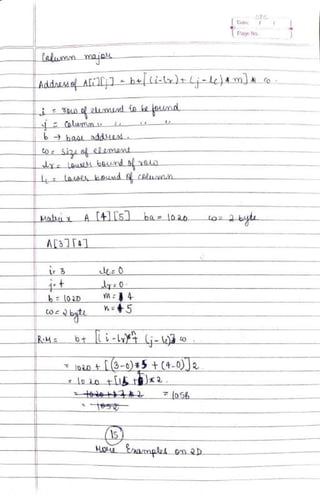 Date: / /
Page No.
Column major
Address of A[i][j] = b+[(i-lr)+(j-lc)*m]* w.
i = row of element to be found
j = Column " " " "
b → base address.
w = size of element
lr = lower bound of row
lc = lower bound of column
Matrix A [4][5] ba = 1020 w = 2 byte
A[3][4]
i = 3 lc = 0
j = 4 lr = 0
b = 1020 m = 4
w = 2 byte n = 5
R.M = b+ [(i-lr)*n + (j-lc)] w
= 1020 + [(3-0)*5 + (4-0)]2
= 1020 + [15 + ]*2
= 1058
15
More Examples on 2D